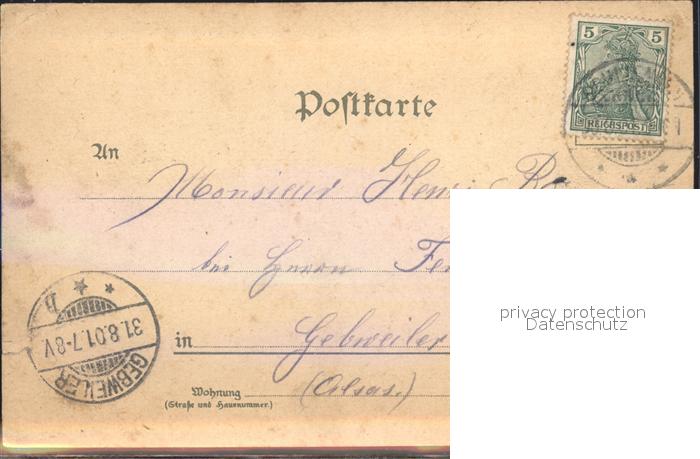 5 5
REICHSPOST
Postkarte
An
Monsieur Henri
bei Herrn
in Gebweiler
(Elsas.)
Wohnung
(Straße und Hausnummer.)
b
31.8.01.7-8V.
GEBWEILER
privacy protection
Datenschutz